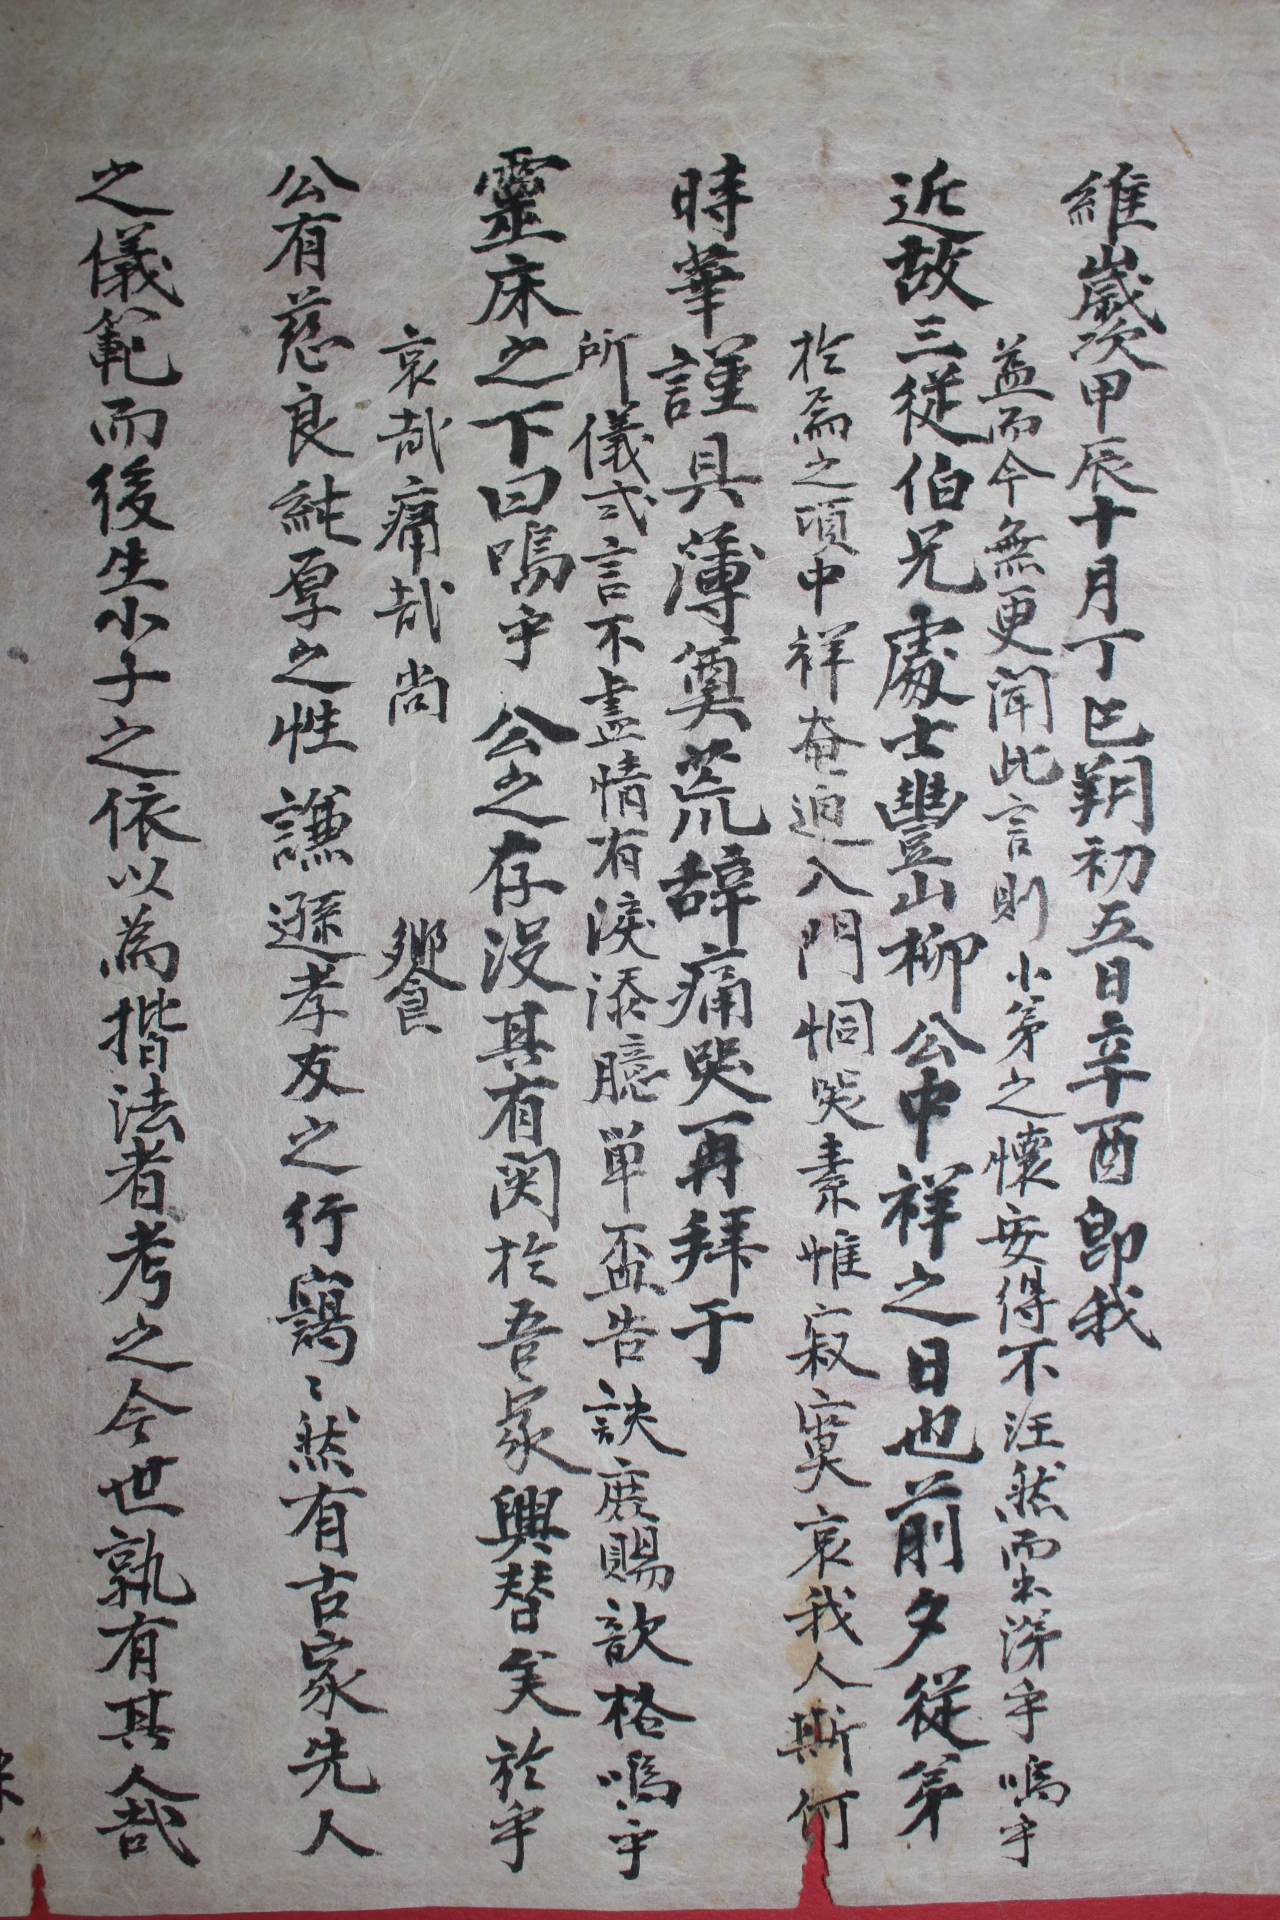 維歲次甲辰十月丁巳朔初五日辛酉卽我
益而今無更聞此言則小弟之懷安得不汪然而出涕乎嗚乎
近故三從伯兄處士豐山柳公中祥之日也前夕從弟
於焉之頃中祥奄迫入門恫哭素帷寂寞哀我人斯何
時華謹具薄奠荒辭痛哭再拜于
所儀式言不盡情有淚添臆単盃告訣庶賜歆格嗚乎
靈床之下曰嗚乎 公之存沒其有関於吾家興替矣於乎
哀哉痛哉尚 饗
公有慈良純厚之性謙遜孝友之行藹〻然有古家先人
之儀範而後生小子之依以為揩法者考之今世孰有其人哉